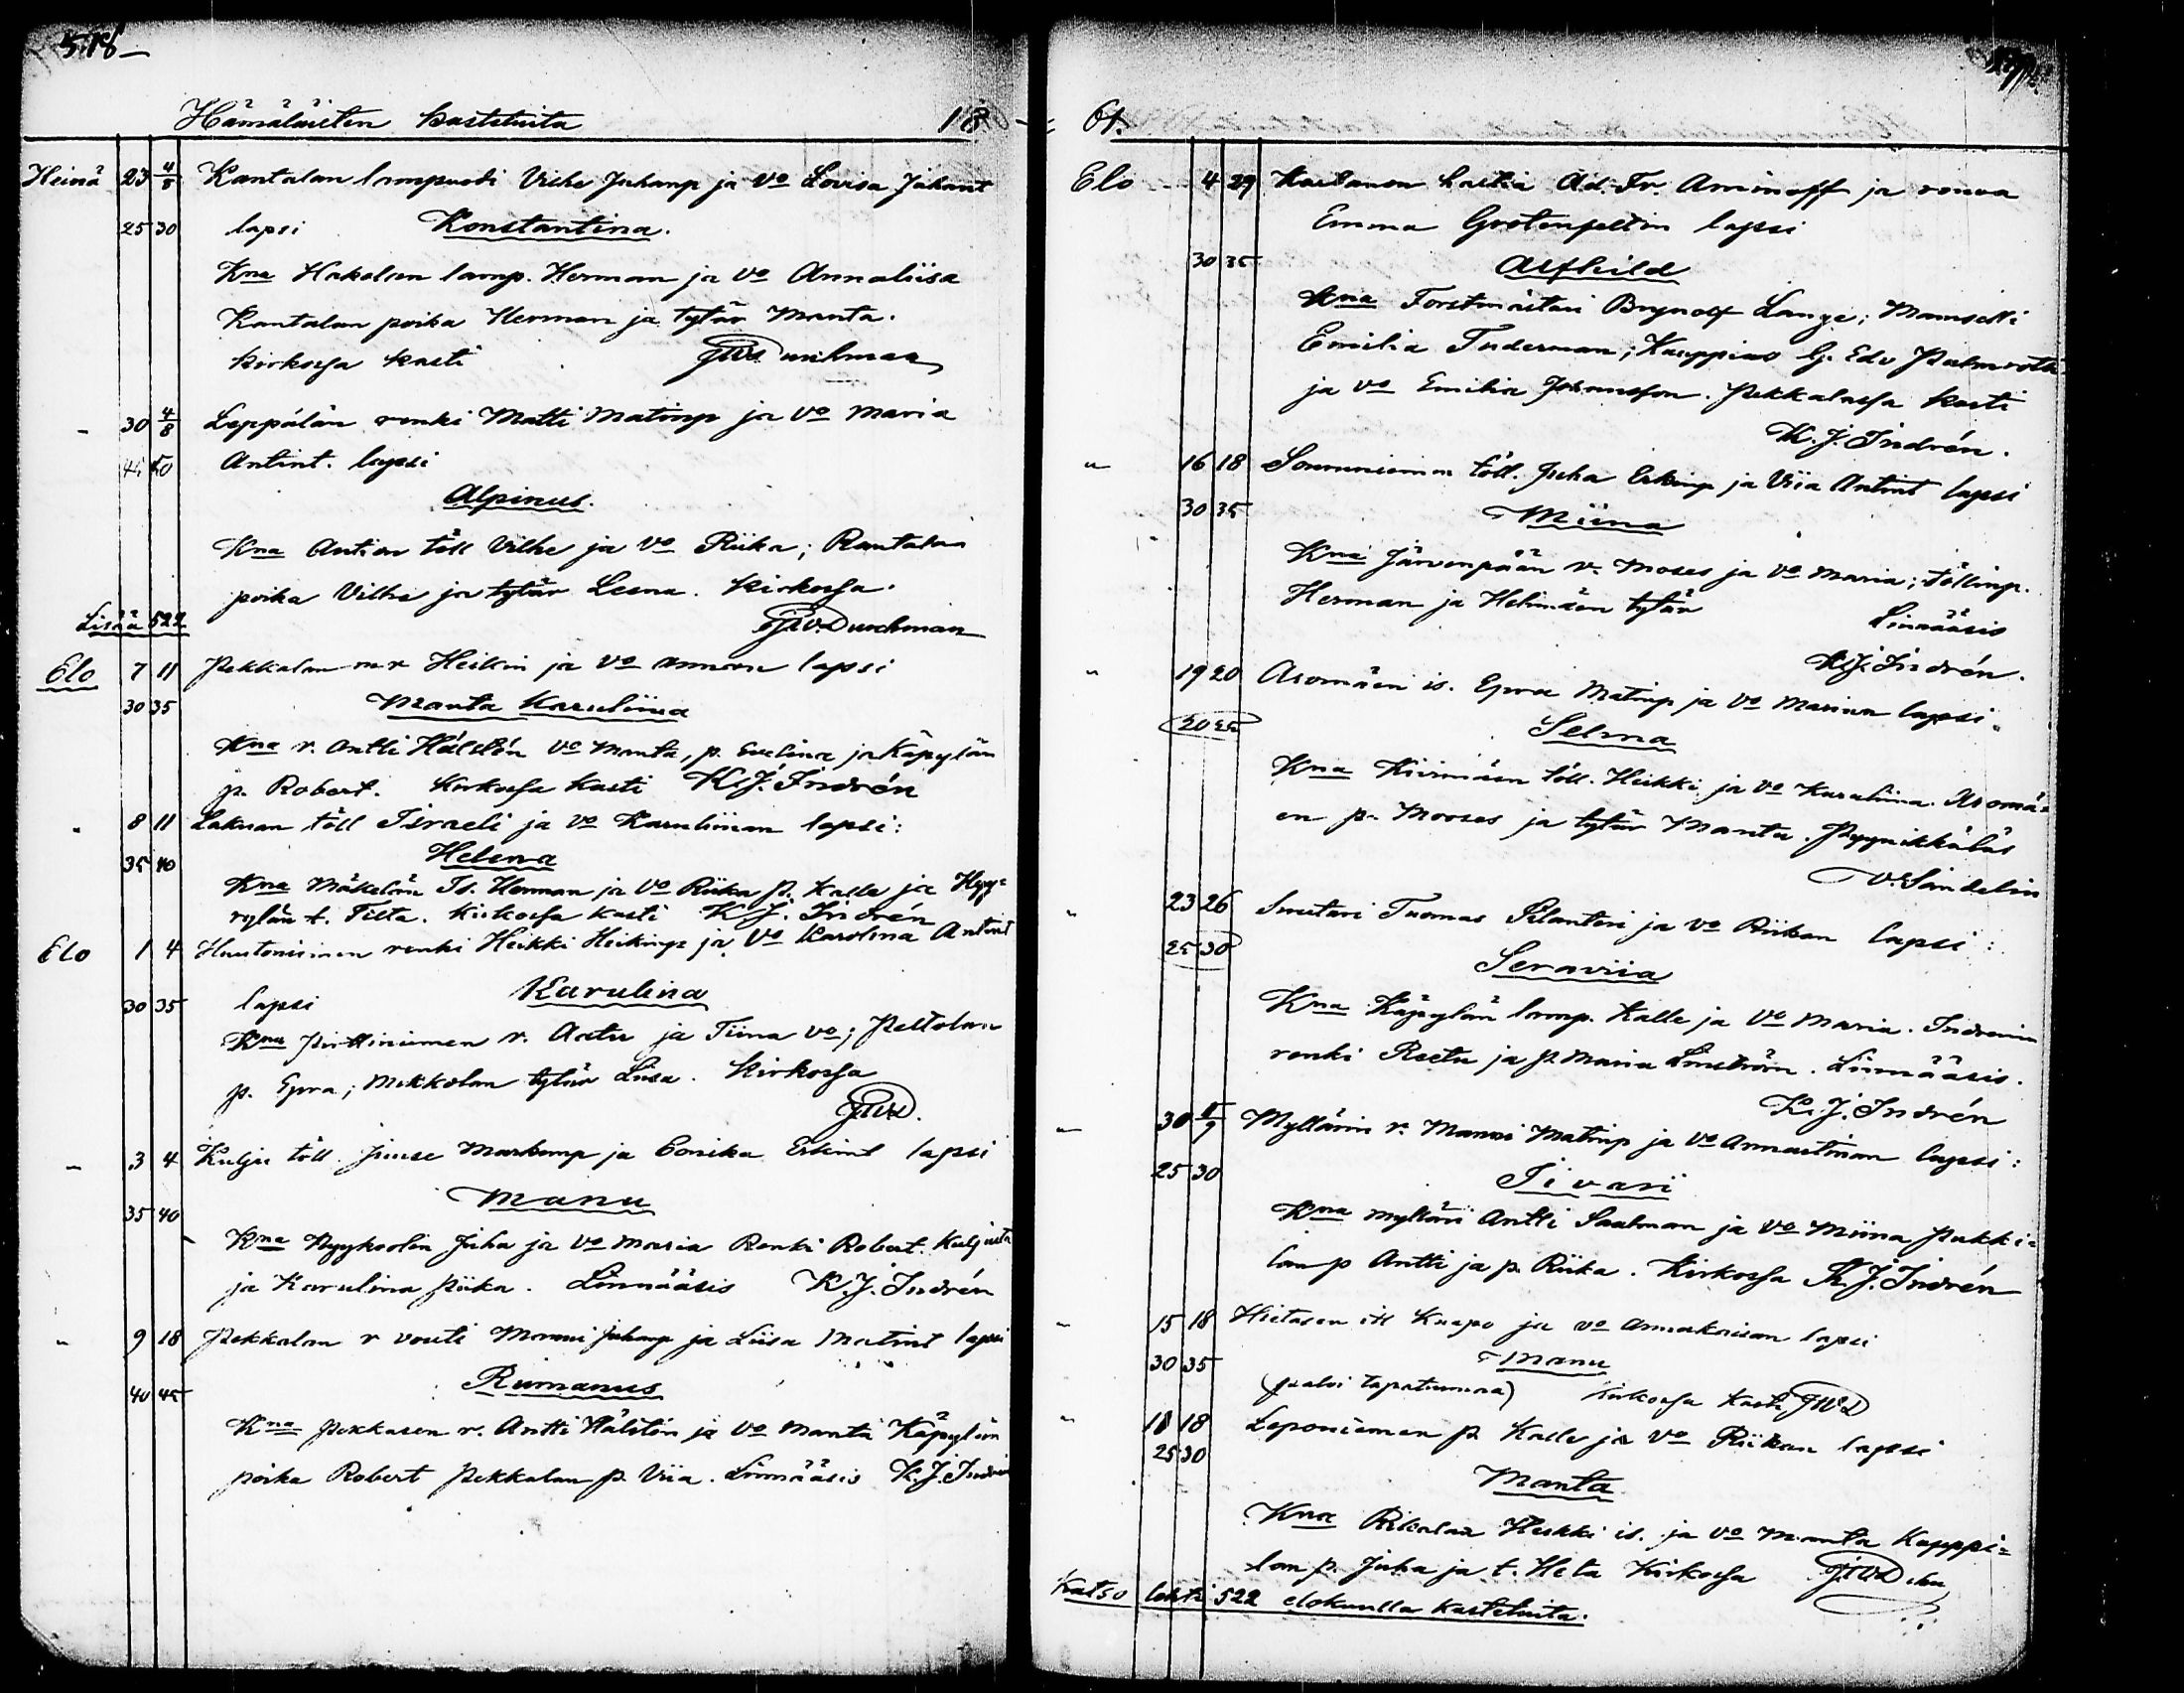 518
Hämäläisten kastetuita 18
Heinä 23 4/8 Kantalan lampuodi Vilhe Juhanp ja Vo Lovisa Juhant
25 30 lapsi Konstantina.
Kna Hakolan lamp. Herman ja Vo Annaliisa
Kantalan poika Herman ja tytär Manta.
kirkossa kasti JWDurchman
" 30 4/8 Leppälän renki Matti Matinp ja Vo Maria
44 50 Antint. lapsi
Alpinus.
Kna Antian töll Vilhe ja Vo Riika; Rantalan
poika Vilhe ja tytär Leena. Kirkossa.
Lisää 522 JWDurchman
Elo 7 11 Pekkalan mr Heikin ja Vo Annan lapsi
30 35 Manta Karuliina
Kna r. Antti Hälstén Vo Manta, p. Evelina ja Käpylän
p. Robert. Kirkossa kasti K.J. Indrén
" 8 11 Laknan töll Israeli ja Vo Karuliinan lapsi:
35 40 Helena
Kna Mäkelän Is. Herman ja Vo Riika p. Kalle ja Hyy=
rylän t. Tilta. Kirkossa kasti K.J. Indrén
Elo 1 4 Huutoniemen renki Heikki Heikinp ja Vo Karolina Antint
30 35 lapsi Karulina
Kna Pirttiniemen r. Aatu ja Tiina Vo; Peltolan
p. Epra; Mikkolan tytär Liisa. Kirkossa
JWD.
" 3 4 Kulju töll. Juuse Markunp ja Eerika Erkint lapsi
35 40 Manu
Kna Nyykoolin Juha ja Vo Maria Renki Robert. Kuljusta
ja Karulina piika. Linnääsis K.J. Indrén
" 9 18 Pekkalan r vouti Manni Juhanp ja Liisa Matint lapsi
40 45 Rumanus
Kna Pekkasen r. Antti Hälstén ja Vo Manta Käpylän
poika Robert Pekkalan p. Viia. Linnääsis K.J. Indrén
61.
Elo 4 29 Kartanon haltia Ad. Fr. Aminoff ja rouva
Emma Grotenfeltin lapsi
30 35 Alfhild
Kna Forstmästari Brynolf Lange; Mamselli
Emilia Tuderman; Kauppias G. Edv Palmroth
ja Vo Emilia Johansson. Pekkalassa kasti
K.J. Indrén.
" 16 18 Sammniemen töll. Juha Erkinp ja Viia Antint lapsi
30 35 Miina
Kna Järvenpään r. Moses ja Vo Maria; töllinp.
Herman ja Helimäen tytär Linnääsis
K.J. Indrén.
" 19 20 Aromäen is. Epra Matinp ja Vo Marian lapsi.
20 25 Selma
Kna Kivimäen töll. Heikki ja Vo Karuliina. Aromä=
en p. Mooses ja tytär Manta. Pyynikkäläs
V. Sandelin
" 23 26 Suutari Tuomas Silantéri ja Vo Riikan lapsi:
25 30 Seraviia
Kna Käpylän lamp. Kalle ja Vo Maria. Indrenin
renki Reetu ja p. Maria Linström. Linnääsis.
K.J. Indrén
" 30 5/9 Myllärin r. Manni Matinp ja Vo Annastiinan lapsi:
25 30 Iivari
Kna mylläri Antti Saalman ja Vo Miina Pukki=
lan p Antti ja p. Riika. Kirkossa K.J. Indrén
" 15 18 Hietasen itl Kaapo ja vo Annakaisan lapsi
30 35 Manu
(palvi tapatuumna) Kirkossa kasti JWD
" 18 18 Leponiemen p Kalle ja Vo Riikan lapsi
25 30 Manta
Kna Rikalan Heikki is. ja Vo Manta Kapppi=
lan p. Juha ja t. Heta Kirkossa JWD
Katso lehti 522 elokuulla kastetuita.